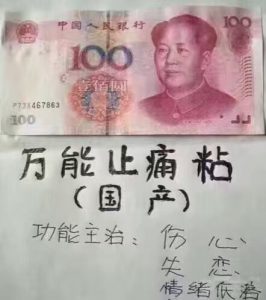 中国人民银行 100
100
壹佰圆
P73X467863
100
万能止痛粘
（国产）
功能主治：伤心
失恋
情绪低落